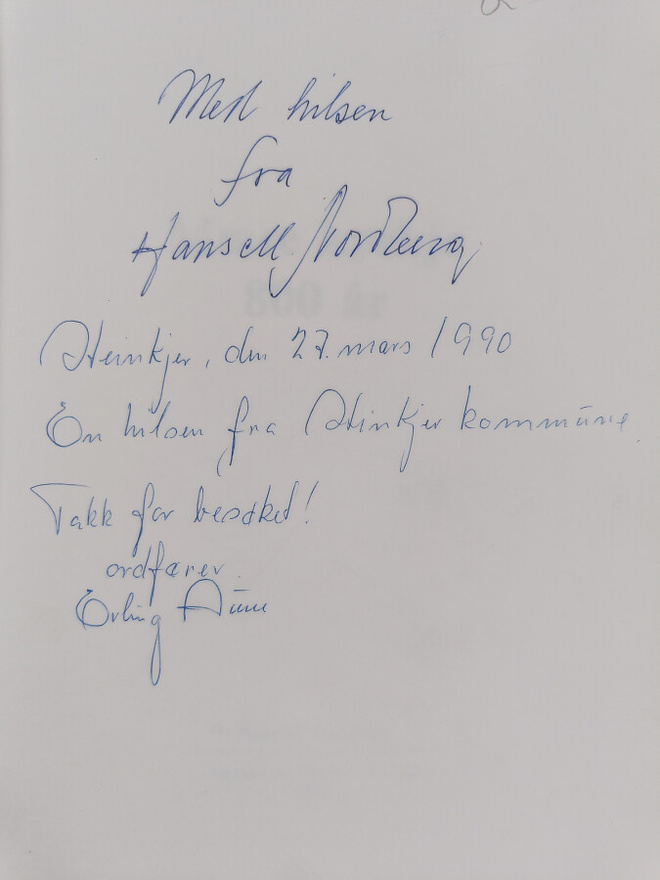 Med hilsen
fra
Hansell Nordberg
Steinkjer, den 27. mars 1990
En hilsen fra Steinkjer kommune.
Takk for besøket!
ordfører
Erling Aune
800 år